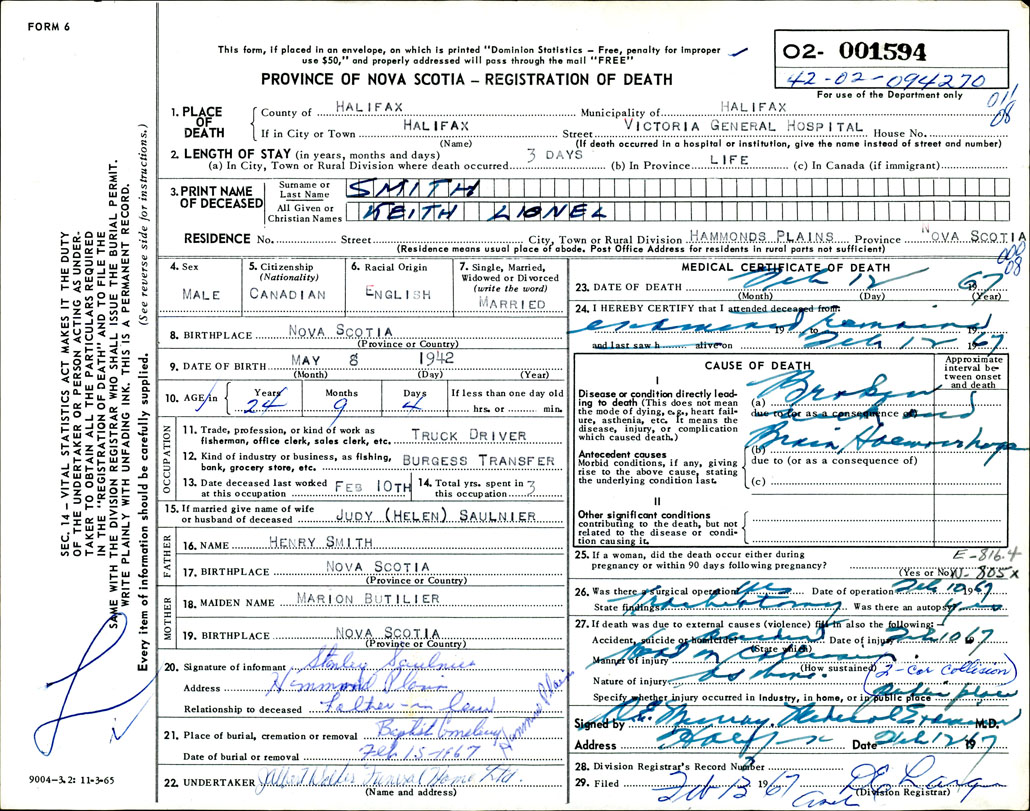 FORM 6
This form, if placed in an envelope, on which is printed "Dominion Statistics – Free, penalty for improper
use $50," and properly addressed will pass through the mail "FREE"
PROVINCE OF NOVA SCOTIA – REGISTRATION OF DEATH
02- 001594
42-02-094270
For use of the Department only
011
08
1. PLACE OF DEATH
County of HALIFAX Municipality of HALIFAX
If in City or Town HALIFAX Street VICTORIA GENERAL HOSPITAL House No.
(Name) (If death occurred in a hospital or institution, give the name instead of street and number)
2. LENGTH OF STAY (in years, months and days)
(a) In City, Town or Rural Division where death occurred 3 DAYS (b) In Province LIFE (c) In Canada (if immigrant)
3. PRINT NAME OF DECEASED
Surname or Last Name SMITH
All Given or Christian Names KEITH LIONEL
RESIDENCE No. Street City, Town or Rural Division HAMMONDS PLAINS Province NOVA SCOTIA
(Residence means usual place of abode. Post Office Address for residents in rural parts not sufficient)
000
08
4. Sex MALE
5. Citizenship (Nationality) CANADIAN
6. Racial Origin ENGLISH
7. Single, Married, Widowed or Divorced (write the word) MARRIED
8. BIRTHPLACE NOVA SCOTIA
(Province or Country)
9. DATE OF BIRTH MAY 8 1942
(Month) (Day) (Year)
10. AGE in Years 24 Months 9 Days 4 If less than one day old hrs. or min.
OCCUPATION
11. Trade, profession, or kind of work as fisherman, office clerk, sales clerk, etc. TRUCK DRIVER
12. Kind of industry or business, as fishing, bank, grocery store, etc. BURGESS TRANSFER
13. Date deceased last worked at this occupation FEB 10TH
14. Total yrs. spent in this occupation 3
15. If married give name of wife or husband of deceased JUDY (HELEN) SAULNIER
FATHER
16. NAME HENRY SMITH
17. BIRTHPLACE NOVA SCOTIA
(Province or Country)
MOTHER
18. MAIDEN NAME MARION BUTILIER
19. BIRTHPLACE NOVA SCOTIA
(Province or Country)
20. Signature of informant Stanley Saulnier
Address Hammond Plain
Relationship to deceased Father-in law
21. Place of burial, cremation or removal Baptist Cemetery Hammond Plain
Date of burial or removal Feb. 15 1967
22. UNDERTAKER Walker Funeral Home Ltd.
(Name and address)
MEDICAL CERTIFICATE OF DEATH
23. DATE OF DEATH Feb 12 1967
(Month) (Day) (Year)
24. I HEREBY CERTIFY that I attended deceased from
examined remains 19 to
and last saw h alive on Feb 12 1967
CAUSE OF DEATH
Approximate interval between onset and death
I
Disease or condition directly leading to death (This does not mean the mode of dying, e.g., heart failure, asthenia, etc. It means the disease, injury, or complication which caused death.)
(a) Broken
due to (or as a consequence of)
(b) Brain Haemorrhage
Antecedent causes
Morbid conditions, if any, giving rise to the above cause, stating the underlying condition last.
due to (or as a consequence of)
(c)
II
Other significant conditions
contributing to the death, but not related to the disease or condition causing it.
25. If a woman, did the death occur either during pregnancy or within 90 days following pregnancy?
(Yes or No)
E-816.4
N-805x
26. Was there a surgical operation yes Date of operation Feb 10 1967
State findings Tracheotomy Was there an autopsy yes
27. If death was due to external causes (violence) fill in also the following: –
Accident, suicide or homicide accident Date of injury Feb 10 1967
(State which)
Manner of injury collision
(How sustained) (2-car collision)
Nature of injury as above.
Specify whether injury occurred in Industry, in home, or in public place public place
Signed by Murray, Medical Examiner M.D.
Address Halifax Date Feb 12 1967
28. Division Registrar's Record Number
29. Filed Feb 13 1967
(Division Registrar)
SEC. 14 – VITAL STATISTICS ACT MAKES IT THE DUTY
OF THE UNDERTAKER OR PERSON ACTING AS UNDER-
TAKER TO OBTAIN ALL THE PARTICULARS REQUIRED
IN THE "REGISTRATION OF DEATH" AND TO FILE THE
SAME WITH THE DIVISION REGISTRAR WHO SHALL ISSUE THE BURIAL PERMIT.
WRITE PLAINLY WITH UNFADING INK. THIS IS A PERMANENT RECORD.
Every item of information should be carefully supplied. (See reverse side for instructions.)
9004-3.2: 11-3-65